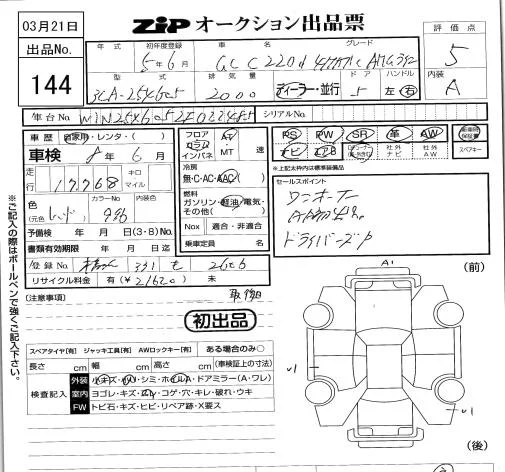 03月21日
出品No.
144
ZIP オークション出品票
評価点
5
内装
A
年式 初年度登録 車名 グレード
5年6月 GLC 220d 4マチック AMGライン
型式 排気量 ドア ハンドル
3CA-254605 2000 ディーラー・並行 5 左 右
車台No. W1N2546052F022485
シリアルNo.
車歴 自家用・レンタ・( )
車検 8年6月
走行 17768 キロ マイル
色 (元色 レッド) カラーNo. 内装色
予備検 年 月 日(3・8)
書類有効期限 年 月 日迄
登録No. 331 も
リサイクル料金 有(¥21620) 未
フロア フラット インパネ AT MT 速
冷房
無・C・AC・AAC
燃料
ガソリン・軽油・電気・その他( )
Nox 適合・非適合
乗車定員 名
PS PW SR 革 AW 新車時保証書
ナビ エアB 社外ナビ 社外AW スペアキー
※上記太枠内は標準装備品
セールスポイント
ワンオーナー
ドライバーズP
(注意事項)
初出品
スペアタイヤ[有] ジャッキ工具[有] AWロックキー[有] ある場合のみ○
長さ cm 幅 cm 高さ cm (車検証上の寸法)
検査記入
外装 小キズ・ハリ・シミ・ホイルA・ドアミラー(A・ワレ)
室内 ヨゴレ・キズ・スレ・コゲ・穴・キレ・破れ・ウキ
FW トビ石・キズ・ヒビ・リペア跡・X要ス
※ご記入の際はボールペンで強くご記入下さい。
A1
(前)
U1
U1
(後)